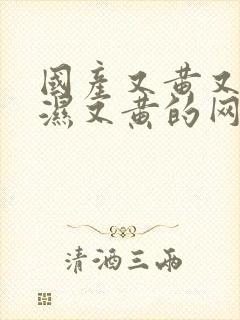 國產又黄又
濕又黄的网
清酒三两